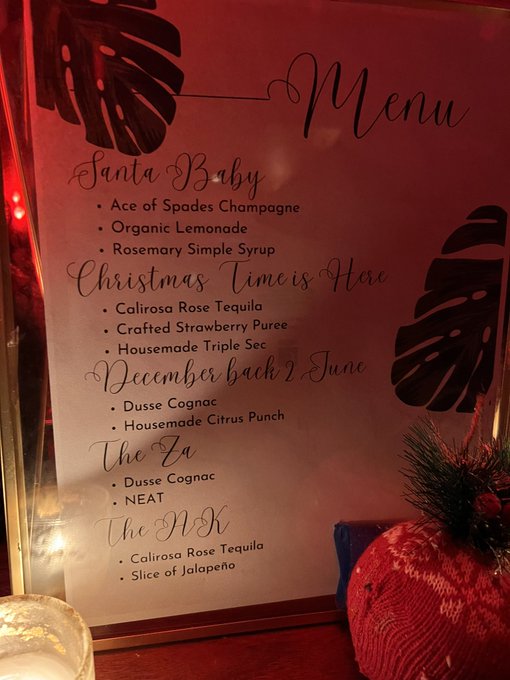 Menu
Santa Baby
• Ace of Spades Champagne
• Organic Lemonade
• Rosemary Simple Syrup
Christmas Time is Here
• Calirosa Rose Tequila
• Crafted Strawberry Puree
• Housemade Triple Sec
December back 2 June
• Dusse Cognac
• Housemade Citrus Punch
The Za
• Dusse Cognac
• NEAT
The AK
• Calirosa Rose Tequila
• Slice of Jalapeño